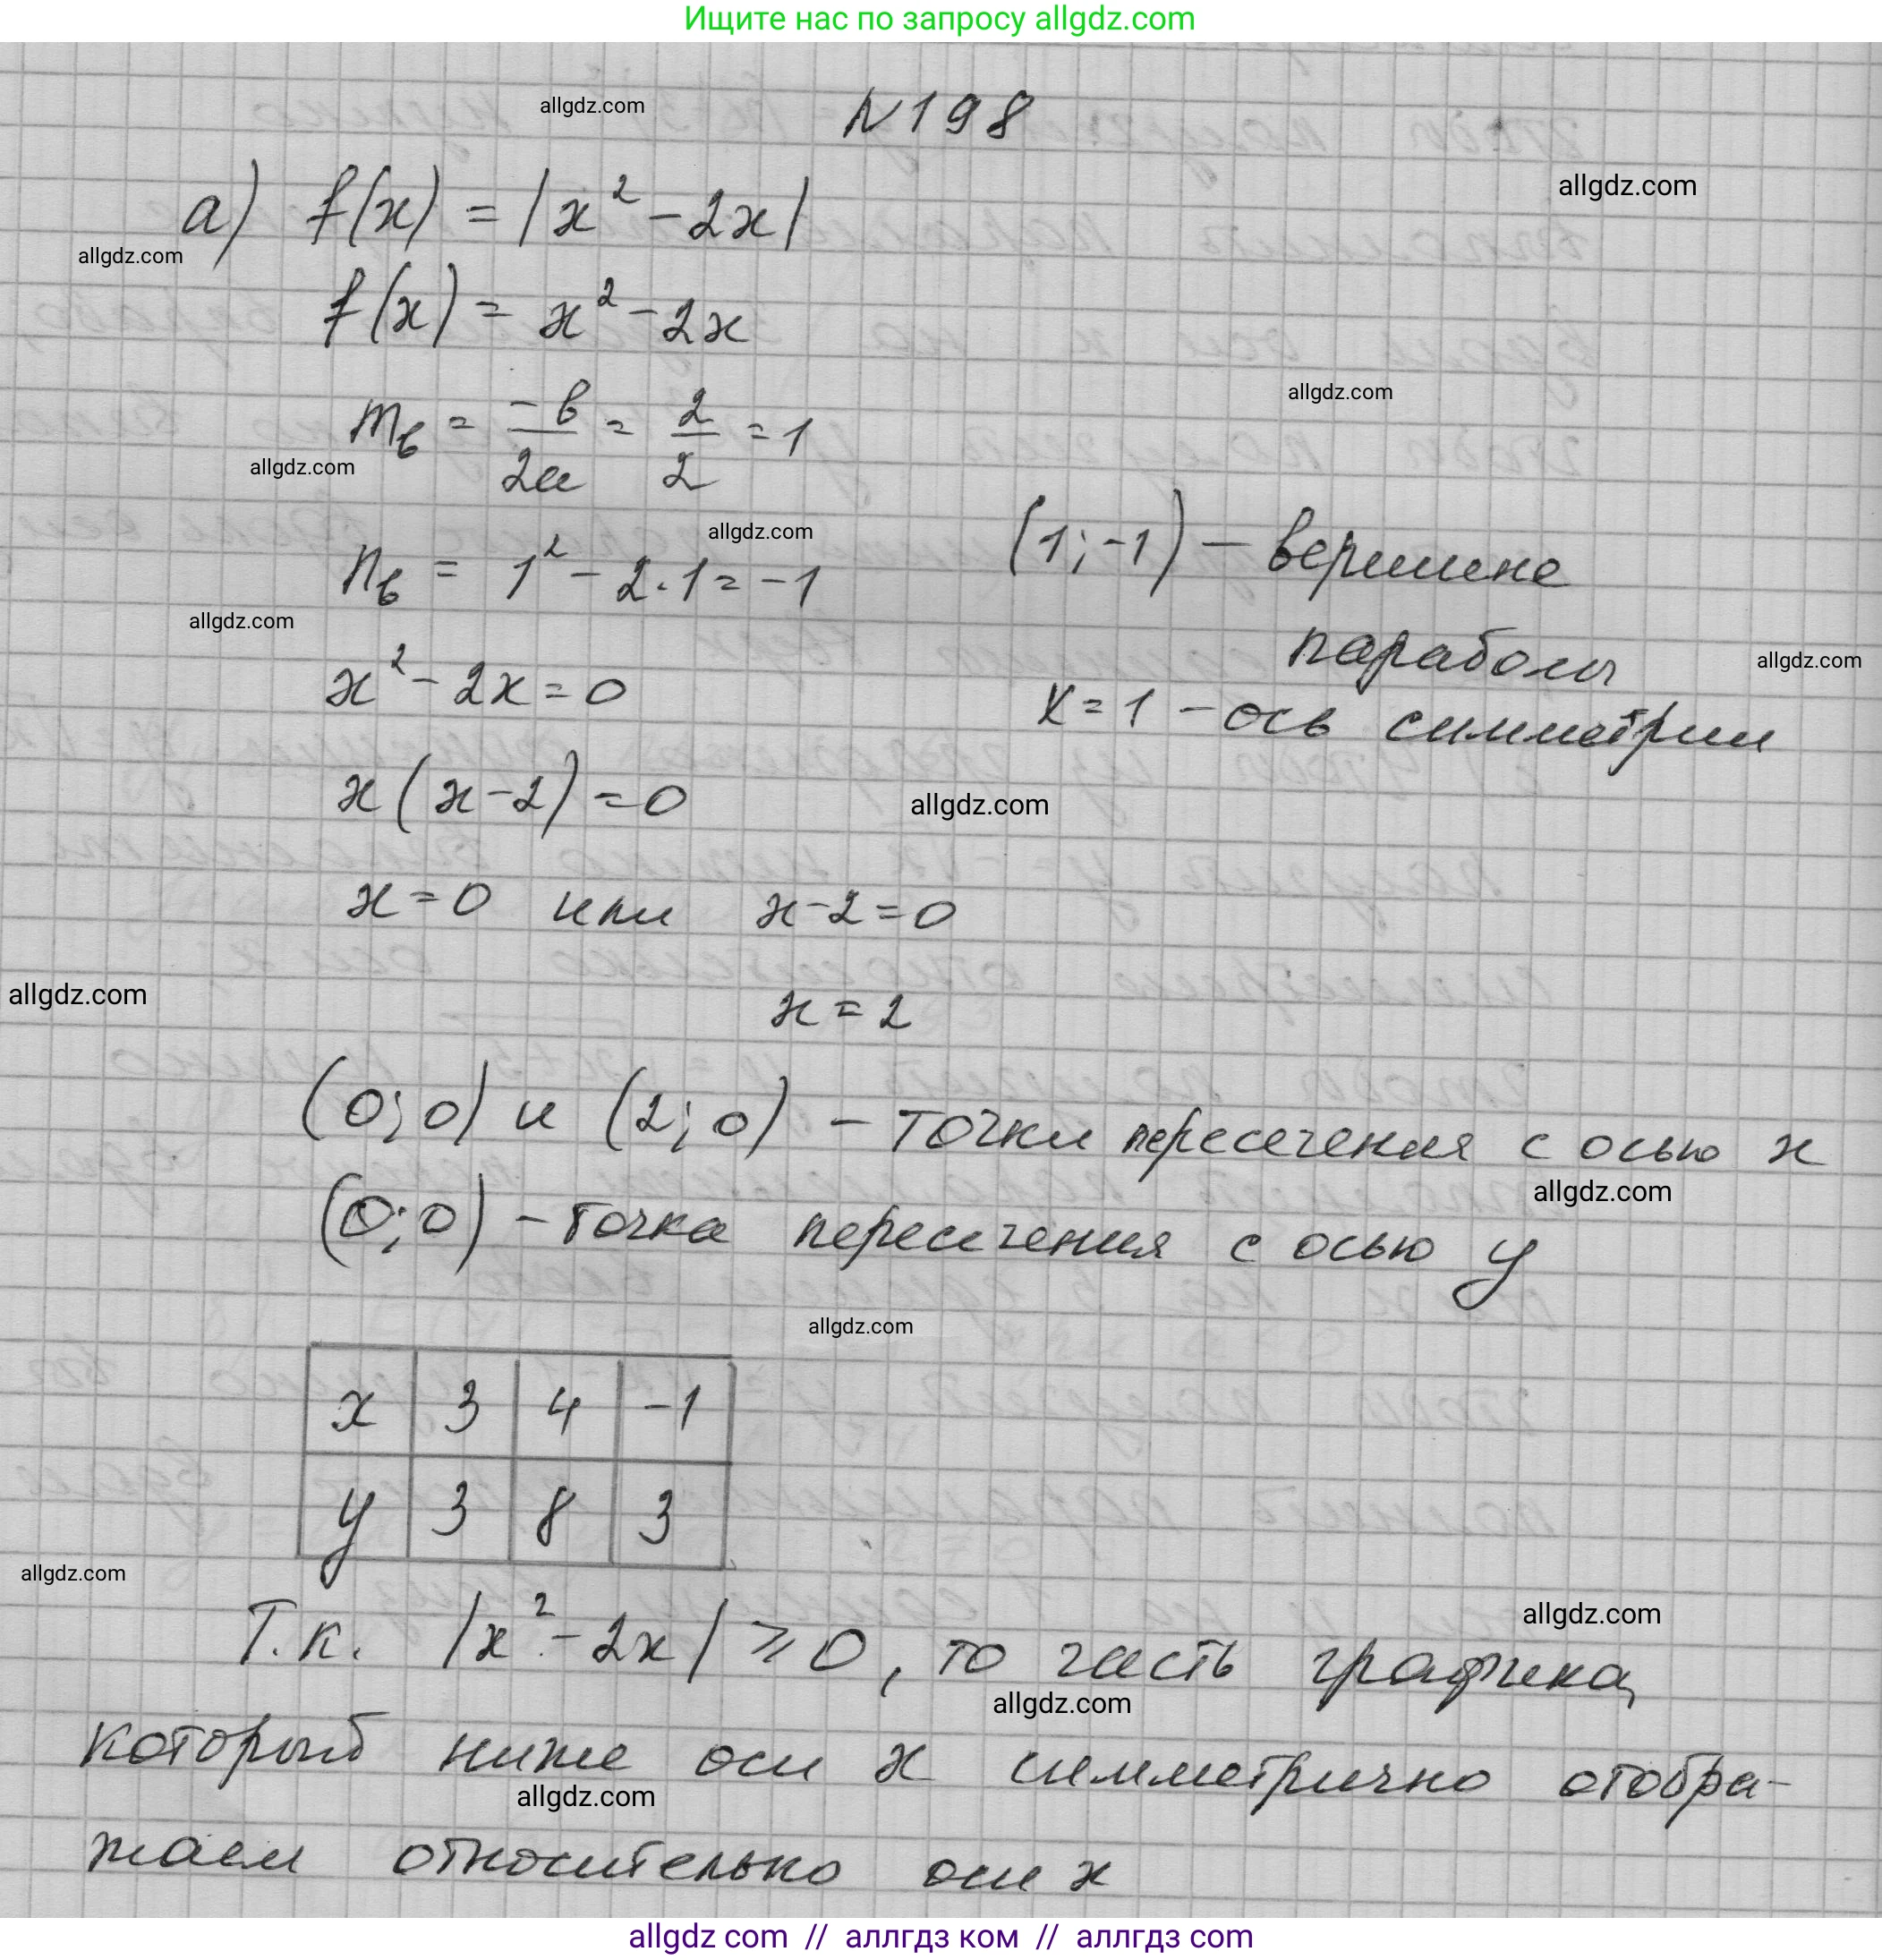 Ищите нас по запросу allgdz.com
allgdz.com
N198
allgdz.com
а) f(x) = |x² - 2x|
allgdz.com
f(x) = x² - 2x
allgdz.com
m_в = -в/2a = 2/2 = 1
allgdz.com
allgdz.com
(1; -1) - вершина
n_в = 1² - 2·1 = -1
allgdz.com
параболы
allgdz.com
x² - 2x = 0
x = 1 - ось симметрии
x(x-2) = 0
allgdz.com
x = 0 или x-2 = 0
allgdz.com
x = 2
(0; 0) и (2; 0) - точки пересечения с осью x
allgdz.com
(0; 0) - точка пересечения с осью y
allgdz.com
x 3 4 -1
y 3 8 3
allgdz.com
allgdz.com
Т.к. |x² - 2x| ⩾ 0, то часть графика,
allgdz.com
который ниже оси x симметрично отобра-
allgdz.com
жаем относительно оси x
allgdz com // аллгдз ком // аллгдз com